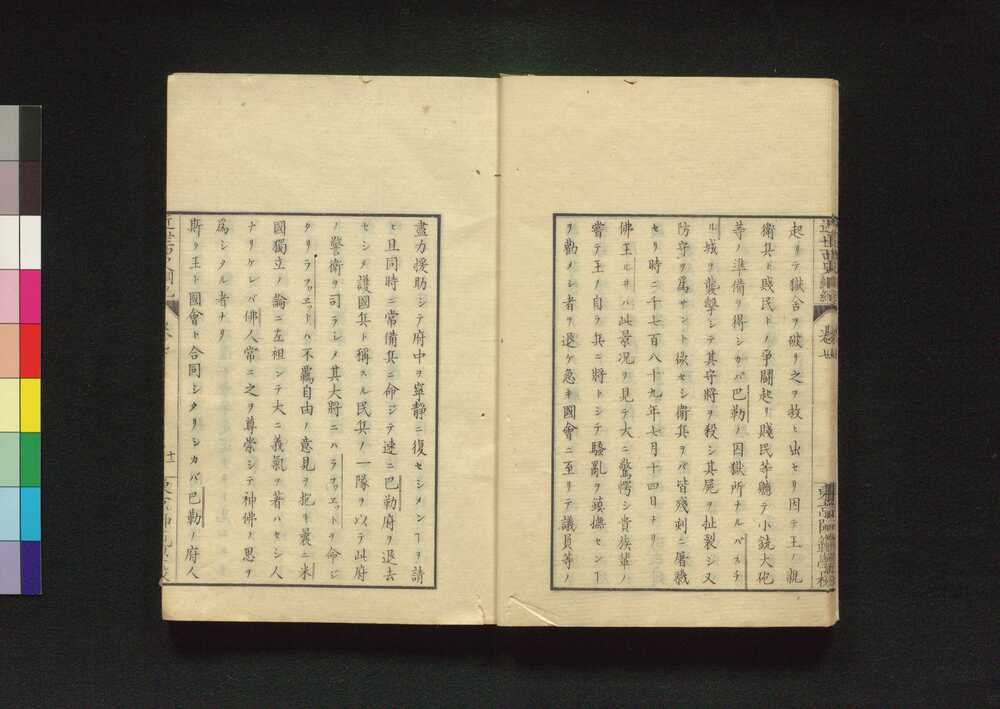 起リテ獄舍ヲ破リ之ヲ放ヒ出セリ因テ王ノ親
衛兵ト賤民トノ爭鬪起リ賤民等聽テ小銃大砲
等ノ準備ヲ得シカバ巴勒ノ囚獄所ナルバスチ
ル城ヲ襲擊シテ其守將ヲ殺シ其屍ヲ扯裂シ又
防守ヲ爲サント欲セシ衛兵ヲバ皆殘刺ニ屠戮
セリ時ニ千七百八十九年七月十四日ナリ
佛王ルサハ此景況ヲ見テ大ニ驚愕シ貴族輩ノ
嘗テ王ノ自ラ兵ニ將トシテ騷亂ヲ鎭撫センヿ
ヲ勸メシ者ヲ退ケ急キ國會ニ至リテ議員等ノ
盡力援助シテ府中ヲ寧靜ニ復セシメンヿヲ請
ヒ且同時ニ常備兵ニ命ジテ速ニ巴勒府ヲ退去
セシメ護國兵ト稱スル民兵ノ一隊ヲ以テ此府
ノ警衛ヲ司ラシメ其大將ニハラファエットヲ命ジ
タリラファエットハ不羈自由ノ意見ヲ抱キ曩ニ米
國獨立ノ論ニ左袒シテ大ニ義氣ヲ著ハセシ人
ナリケレバ佛人常ニ之ヲ尊崇シテ神佛ノ思ヲ
爲シタル者ナリ
斯ク王ト國會ト合同シタリシカバ巴勒ノ府人
十二